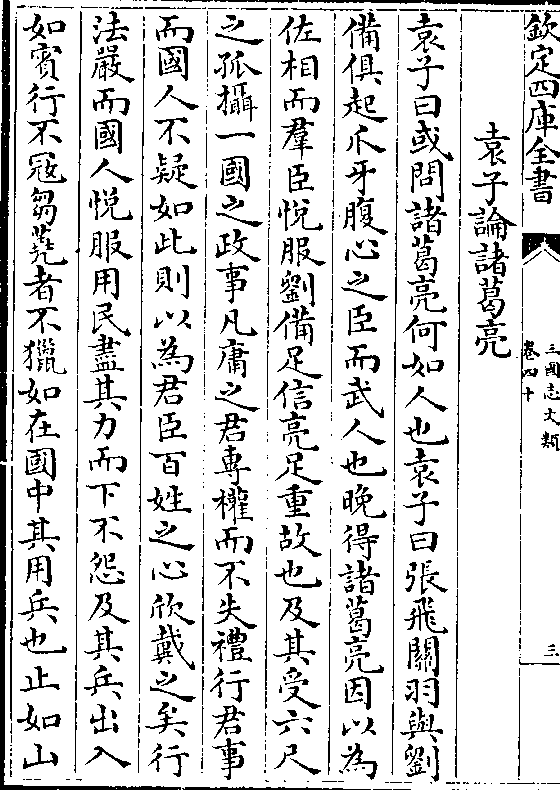 欽定四庫全書
三國志文類
卷四十
三
袁子論諸葛亮
袁子曰或問諸葛亮何如人也袁子曰張飛關羽與劉
備俱起爪牙腹心之臣而武人也晚得諸葛亮因以為
佐相而羣臣悅服劉備足信亮足重故也及其受六尺
之孤攝一國之政事凡庸之君專權而不失禮行君事
而國人不疑如此則以為君臣百姓之心欣戴之矣行
法嚴而國人悅服用民盡其力而下不怨及其兵出入
如賓行不冦芻蕘者不獵如在國中其用兵也止如山